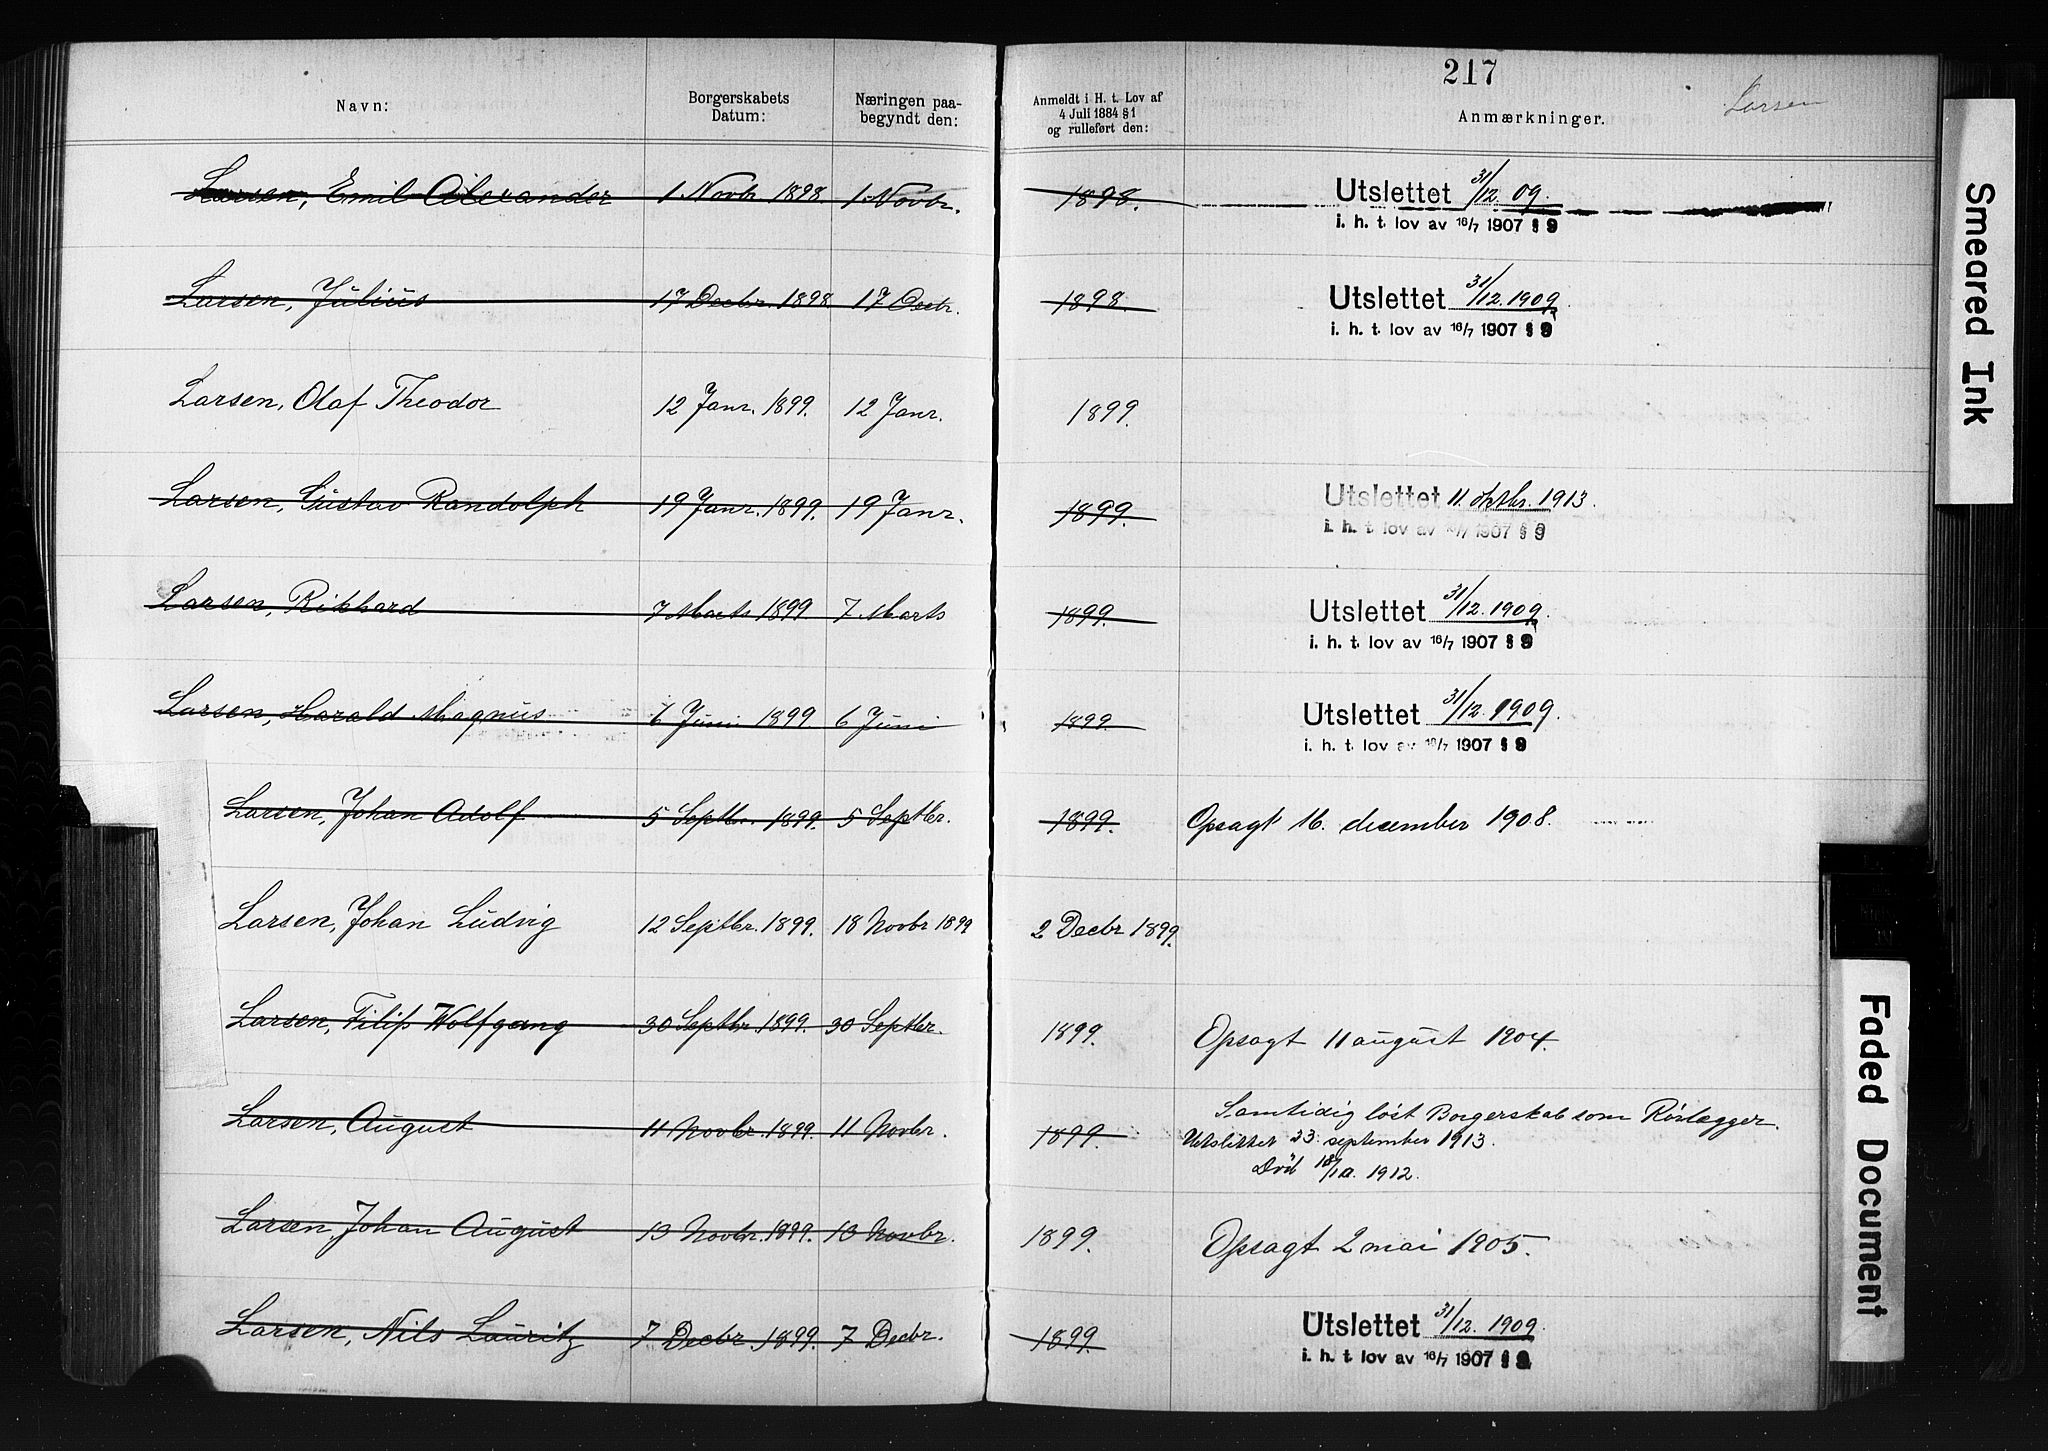 217
Larsen
Navn: Borgerskabets Datum: Næringen paabegyndt den: Anmeldt i H. t. Lov af 4 Juli 1884 § 1 og rulleført den: Anmærkninger.
Larsen, Emil Alexander 1. Novbr. 1898 1. Novbr. 1898. Utslettet 31/12 09.
i. h. t. lov av 16/7 1907 § 9
Larsen, Julius 17 Decbr. 1898 17 Decbr. 1898. Utslettet 31/12. 1909.
i. h. t. lov av 16/7 1907 § 9
Larsen, Olaf Theodor 12 Janr. 1899. 12 Janr. 1899.
Larsen, Gustav Randolph 19 Janr. 1899. 19 Janr. 1899. Utslettet 11. oktbr. 1913.
i. h. t. lov av 16/7 1907 § 9
Larsen, Rikhard 7 Marts 1899 7 Marts 1899. Utslettet 31/12. 1909.
i. h. t. lov av 16/7 1907 § 9
Larsen, Harald Magnus 6 Juni 1899 6 Juni 1899. Utslettet 31/12. 1909.
i. h. t. lov av 16/7 1907 § 9
Larsen, Johan Adolf 5 Septbr. 1899. 5 Septbr. 1899. Opsagt 16. december 1908.
Larsen, Johan Ludvig 12 Septbr. 1899. 18 Novbr 1899 2 Decbr 1899.
Larsen, Filip Wolfgang 30 Septbr. 1899. 30 Septbr. 1899. Opsagt 11 august 1904.
Larsen, August 11 Novbr. 1899. 11 Novbr. 1899. Samtidig løst Borgerskab som Rørlægger.
Utslettet 23. september 1913.
Død 18/10. 1912.
Larsen, Johan August 13 Novbr. 1899. 13 Novbr. 1899. Opsagt 2 mai 1905.
Larsen, Nils Lauritz 7 Decbr. 1899. 7 Decbr. 1899. Utslettet 31/12. 1909.
i. h. t. lov av 16/7 1907 §
Smeared Ink
Faded Document